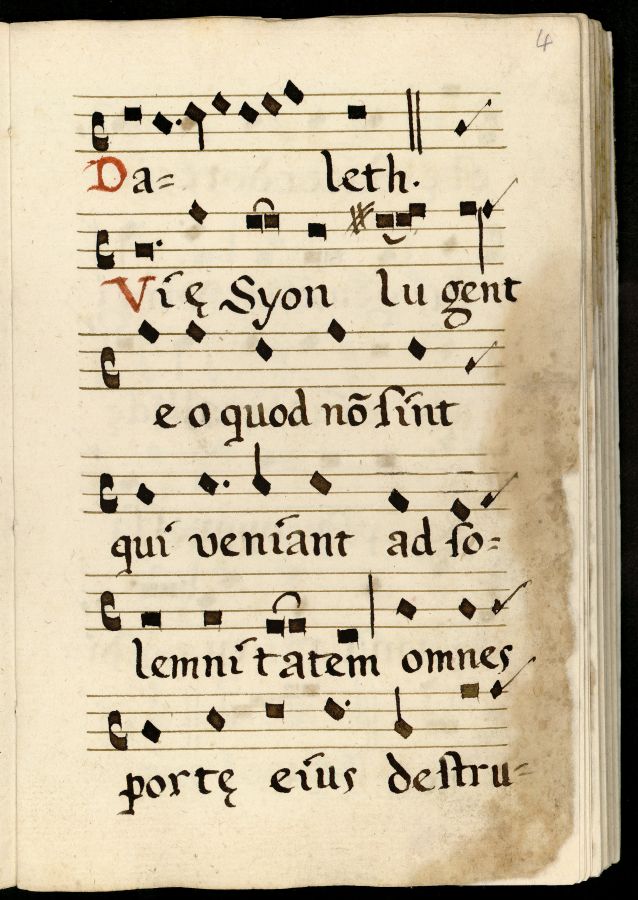 4
Da= leth.
Vię Syon lugent
eo quod nō ſint
qui veniant ad ſo=
lemnitatem omnes
portę eius deſtru=